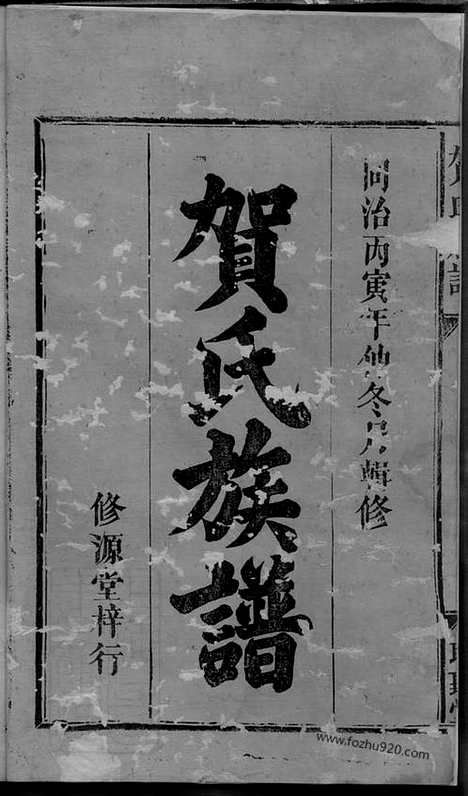 同治丙寅年仲冬月輯修
賀氏族譜
修源堂梓行
www.fozhu920.com